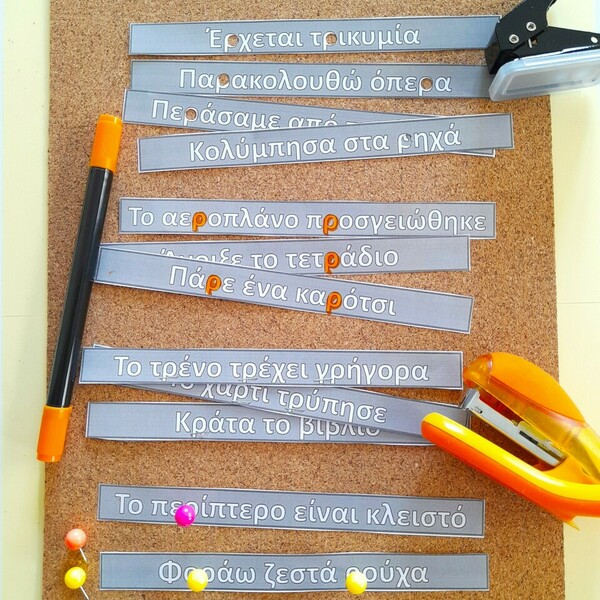 Έρχεται τρικυμία
Παρακολουθώ όπερα
Περάσαμε από
Κολύμπησα στα ρηχά
Το αεροπλάνο προσγειώθηκε
Άνοιξε το τετράδιο
Πάρε ένα καρότσι
Το τρένο τρέχει γρήγορα
Το χαρτί τρύπησε
Κράτα το βιβλίο
Το περίπτερο είναι κλειστό
Φοράω ζεστά ρούχα